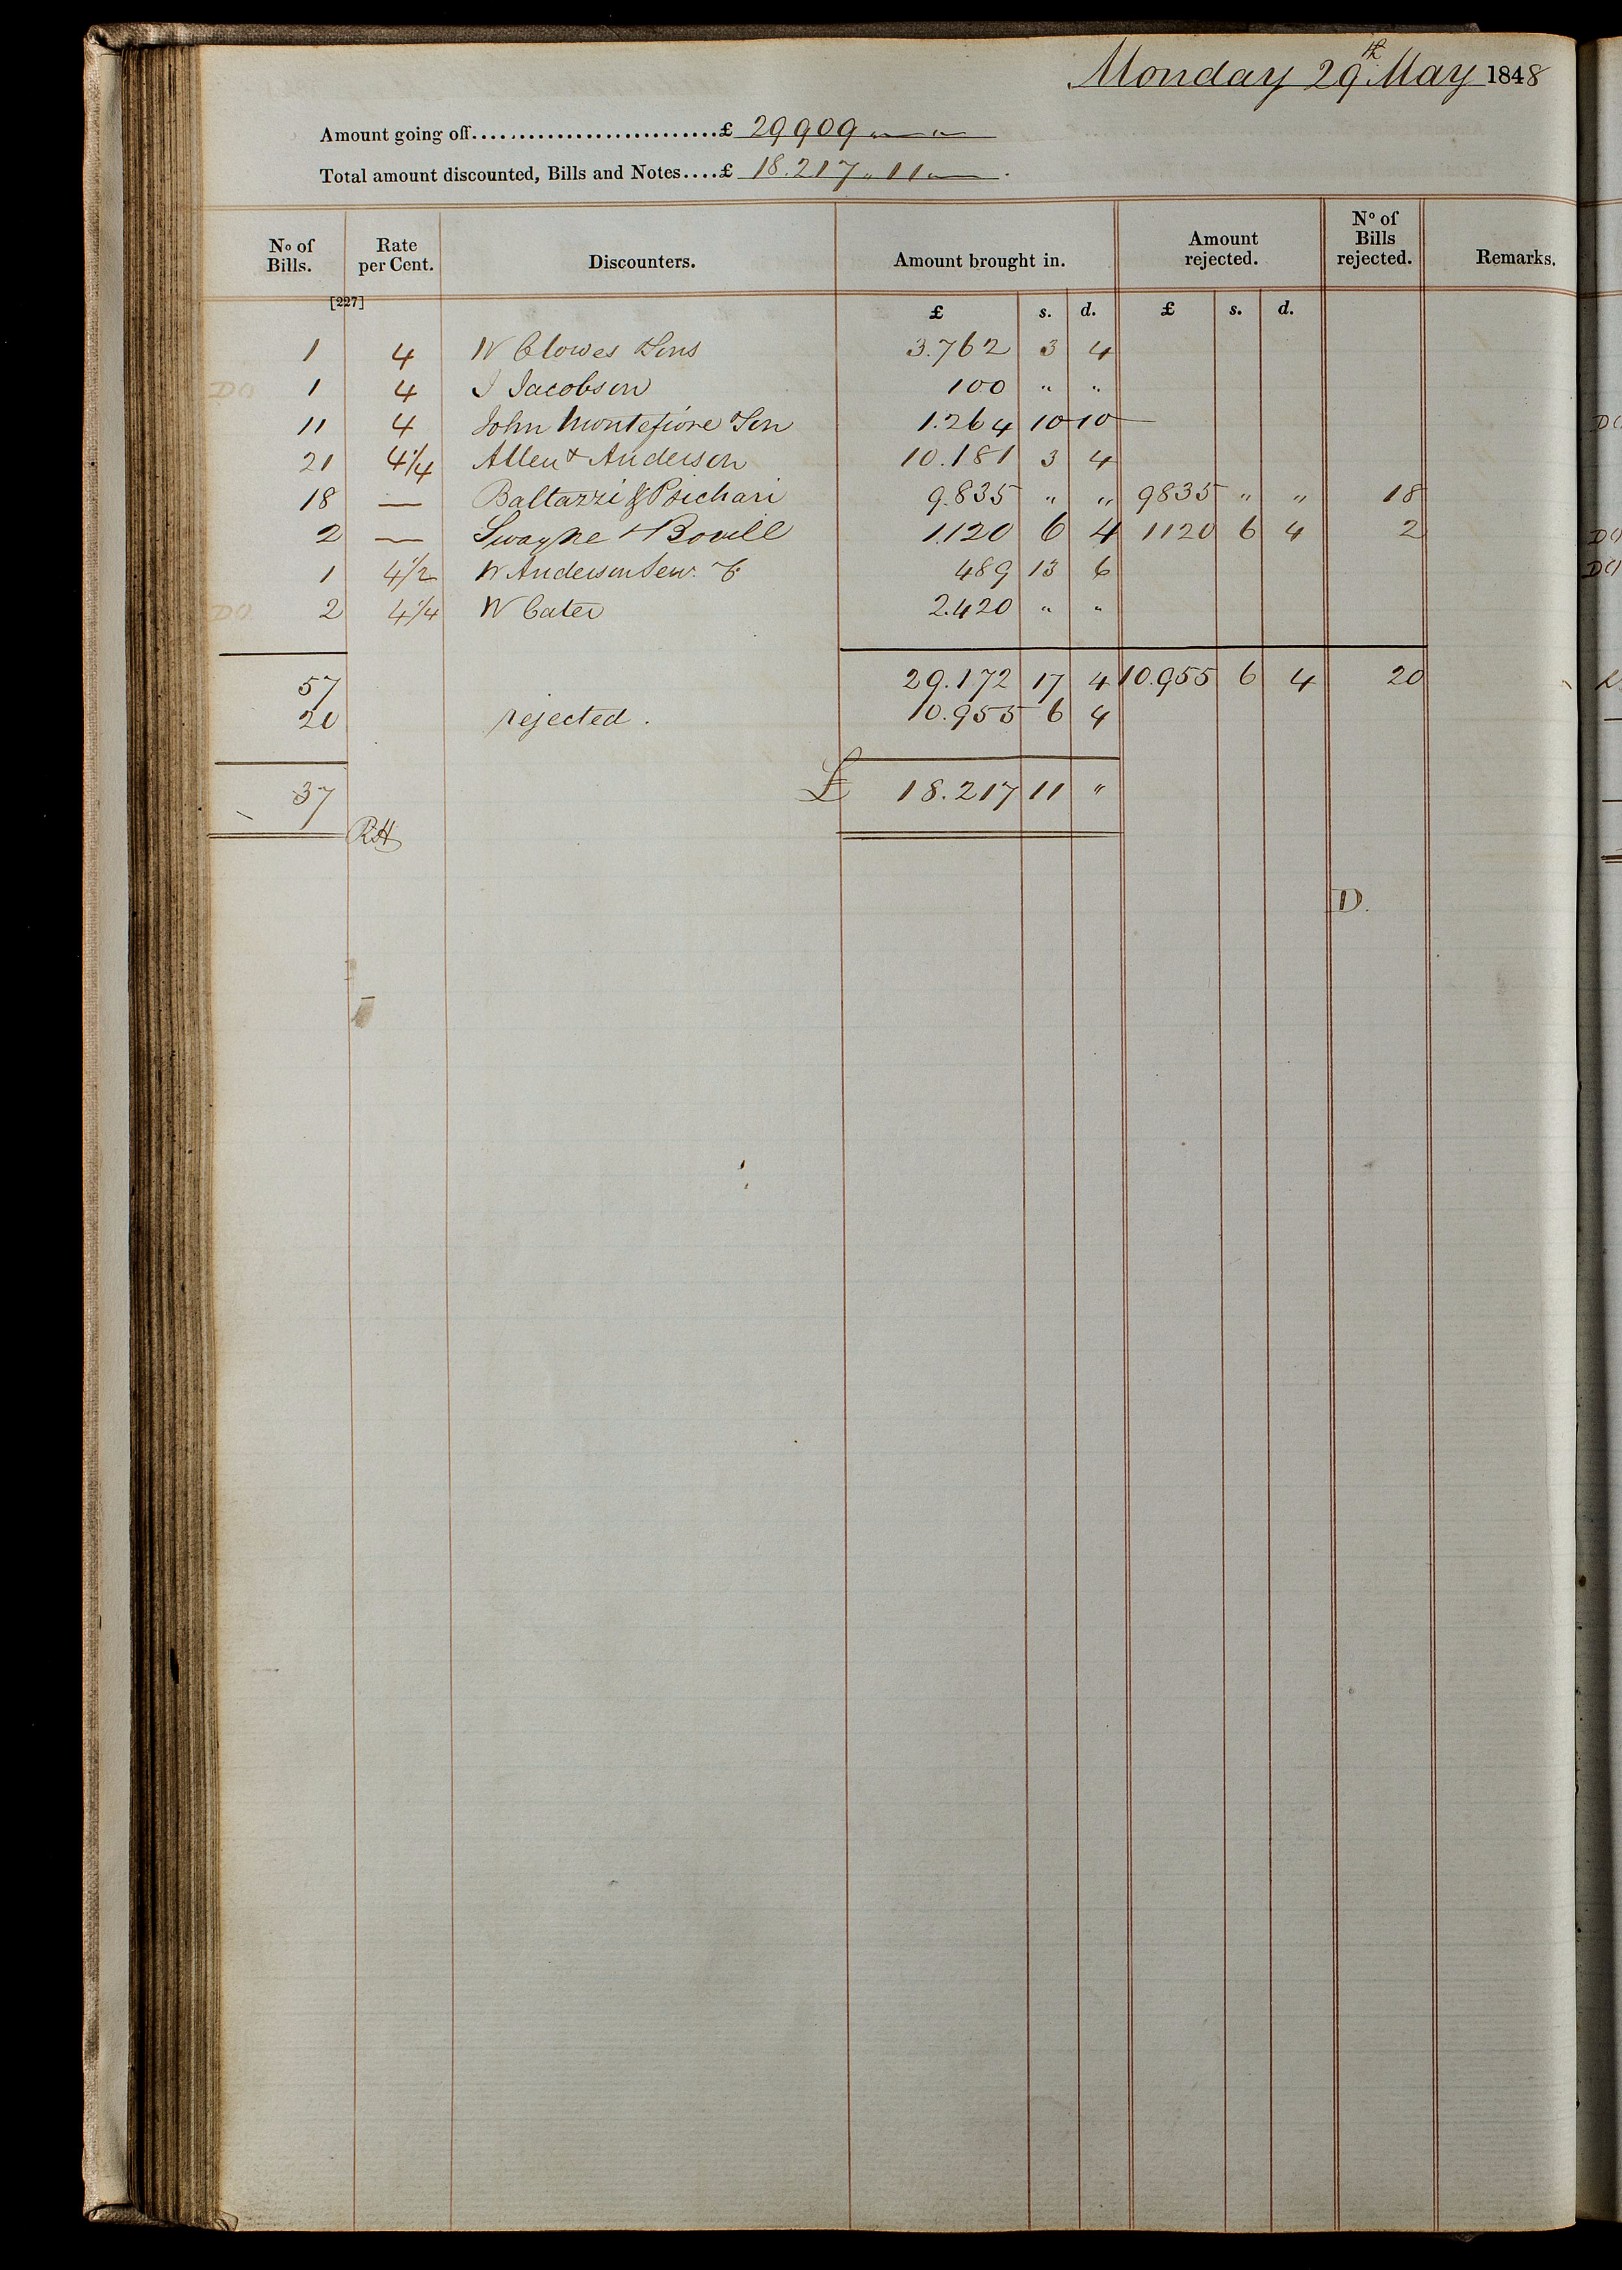 Monday 29th May 1848
Amount going off..........................£ 29909 " — " —
Total amount discounted, Bills and Notes....£ 18.217 " 11 " — .
No of Bills. Rate per Cent. Discounters. Amount brought in. Amount rejected. No of Bills rejected. Remarks.
[227]
£ s. d. £ s. d.
1 4 W Clowes & Sons 3.762 3 4
DO 1 4 I Jacobson 100 " "
11 4 John Montefiore & Son 1.264 10 10
21 4 1/4 Allen & Anderson 10.181 3 4
18 — Baltazzi & Psichari 9.835 " " 9835 " " 18
2 — Swayne & Bovill 1.120 6 4 1120 6 4 2
1 4 1/2 W Anderson Sen. & C 489 13 6
DO 2 4 1/4 W Cater 2.420 " "
57 29.172 17 4 10.955 6 4 20
20 rejected. 10.955 6 4
37 £ 18.217 11 "
RH
D.